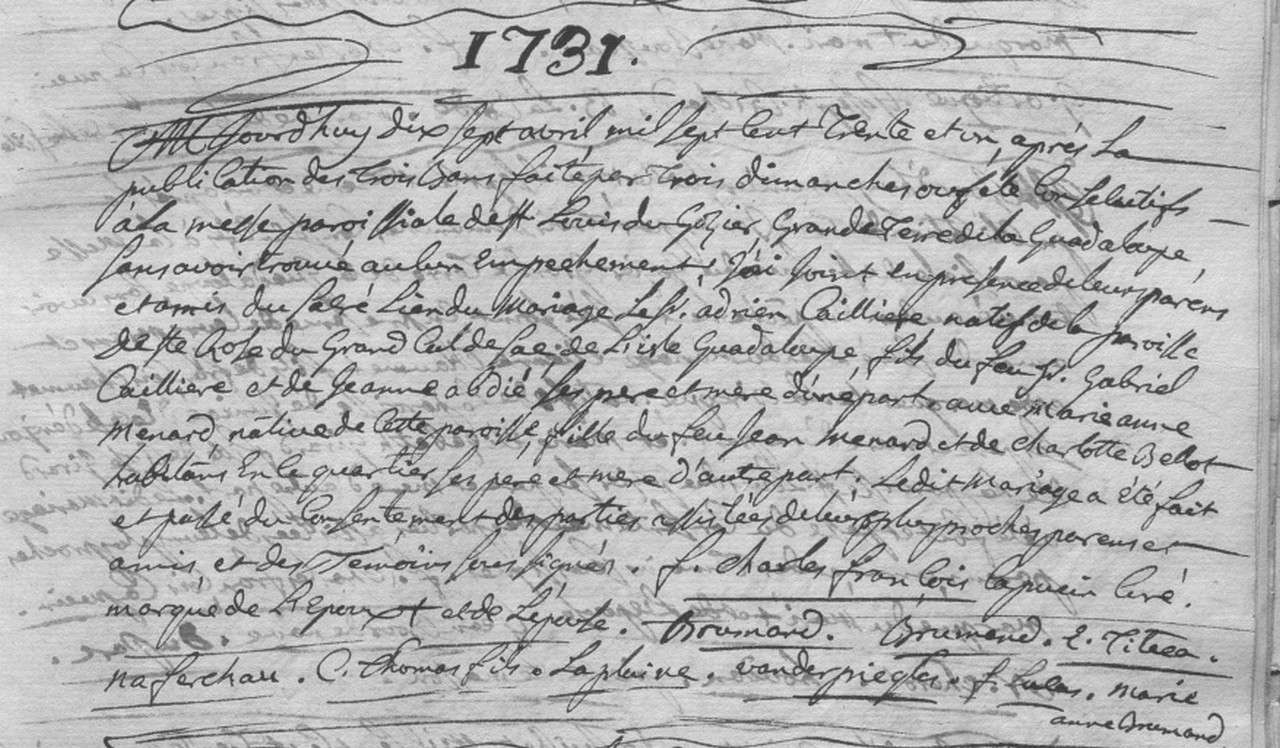 1731.
Au Jourd'huy dix sept avril mil sept cent Trente et un, après La
publication des trois bans faite par trois dimanches ou fete consecutifs
à La messe paroissiale de st Louis du Gozier Grande Terre de la Guadaloupe,
sans avoir trouvé aucun Empechement, J'ai Joint en presence de leurs parens
et amis du sacré Lien du Mariage Le sr. adrien Cailliere natif de la paroisse
de ste Rose du Grand Cul de Sac, de L'isle Guadaloupe, fils du feu sr. Gabriel
Cailliere et de Jeanne abdié ses pere et mere d'une part, avec marie anne
Menard, native de Cette paroisse, fille du feu Jean menard et de charlotte Bellot
habitans En le quartier ses pere et mere d'autre part. Ledit Mariage a été fait
et passé du Consentement des parties assistées de leurs plus proches parens et
amis, et des Temoins soussignés. f. charles françois capucin Curé.
marque de L'Epoux + et de L'épouse. Brumand. Brumand. E. Titeca.
naferchau. C. Thomas fils. Laplaine. vanderpiegles. f. Lucas. marie
anne Brumand